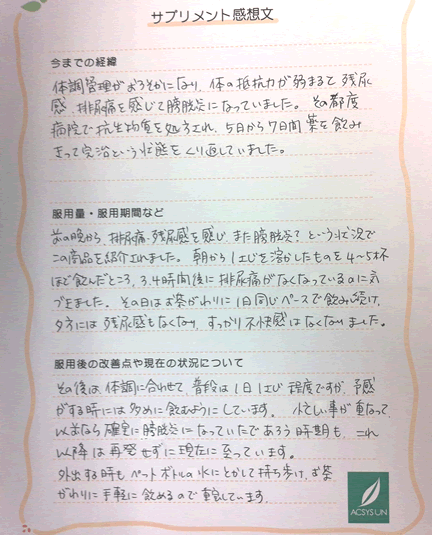 サプリメント感想文
今までの経緯
体調管理がおろそかになり、体の抵抗力が弱まると残尿
感、排尿痛を感じて膀胱炎になっていました。その都度
病院で抗生物質を処方され、5日から7日間薬を飲み
きって完治という状態をくり返していました。
服用量・服用期間など
前の晩から、排尿痛・残尿感を感じ、また膀胱炎?という状況で
この商品を紹介されました。朝から1さじを溶かしたものを4〜5杯
ほど飲んだところ、3.4時間後に排尿痛がなくなっているのに気
づきました。その日はお茶がわりに1日同じペースで飲み続け、
夕方には残尿感もなくなり、すっかり不快感はなくなりました。
服用後の改善点や現在の状況について
その後は、体調に合わせて、普段は1日1さじ程度ですが、予感
がする時には多めに飲むようにしています。忙しい事が重なって、
以前なら確実に膀胱炎になっていたであろう時期も、これ
以降は再発せずに現在に至っています。
外出する時もペットボトルの水にとかして持ち歩け、お茶
がわりに手軽に飲めるので重宝しています。
ACSYSUN